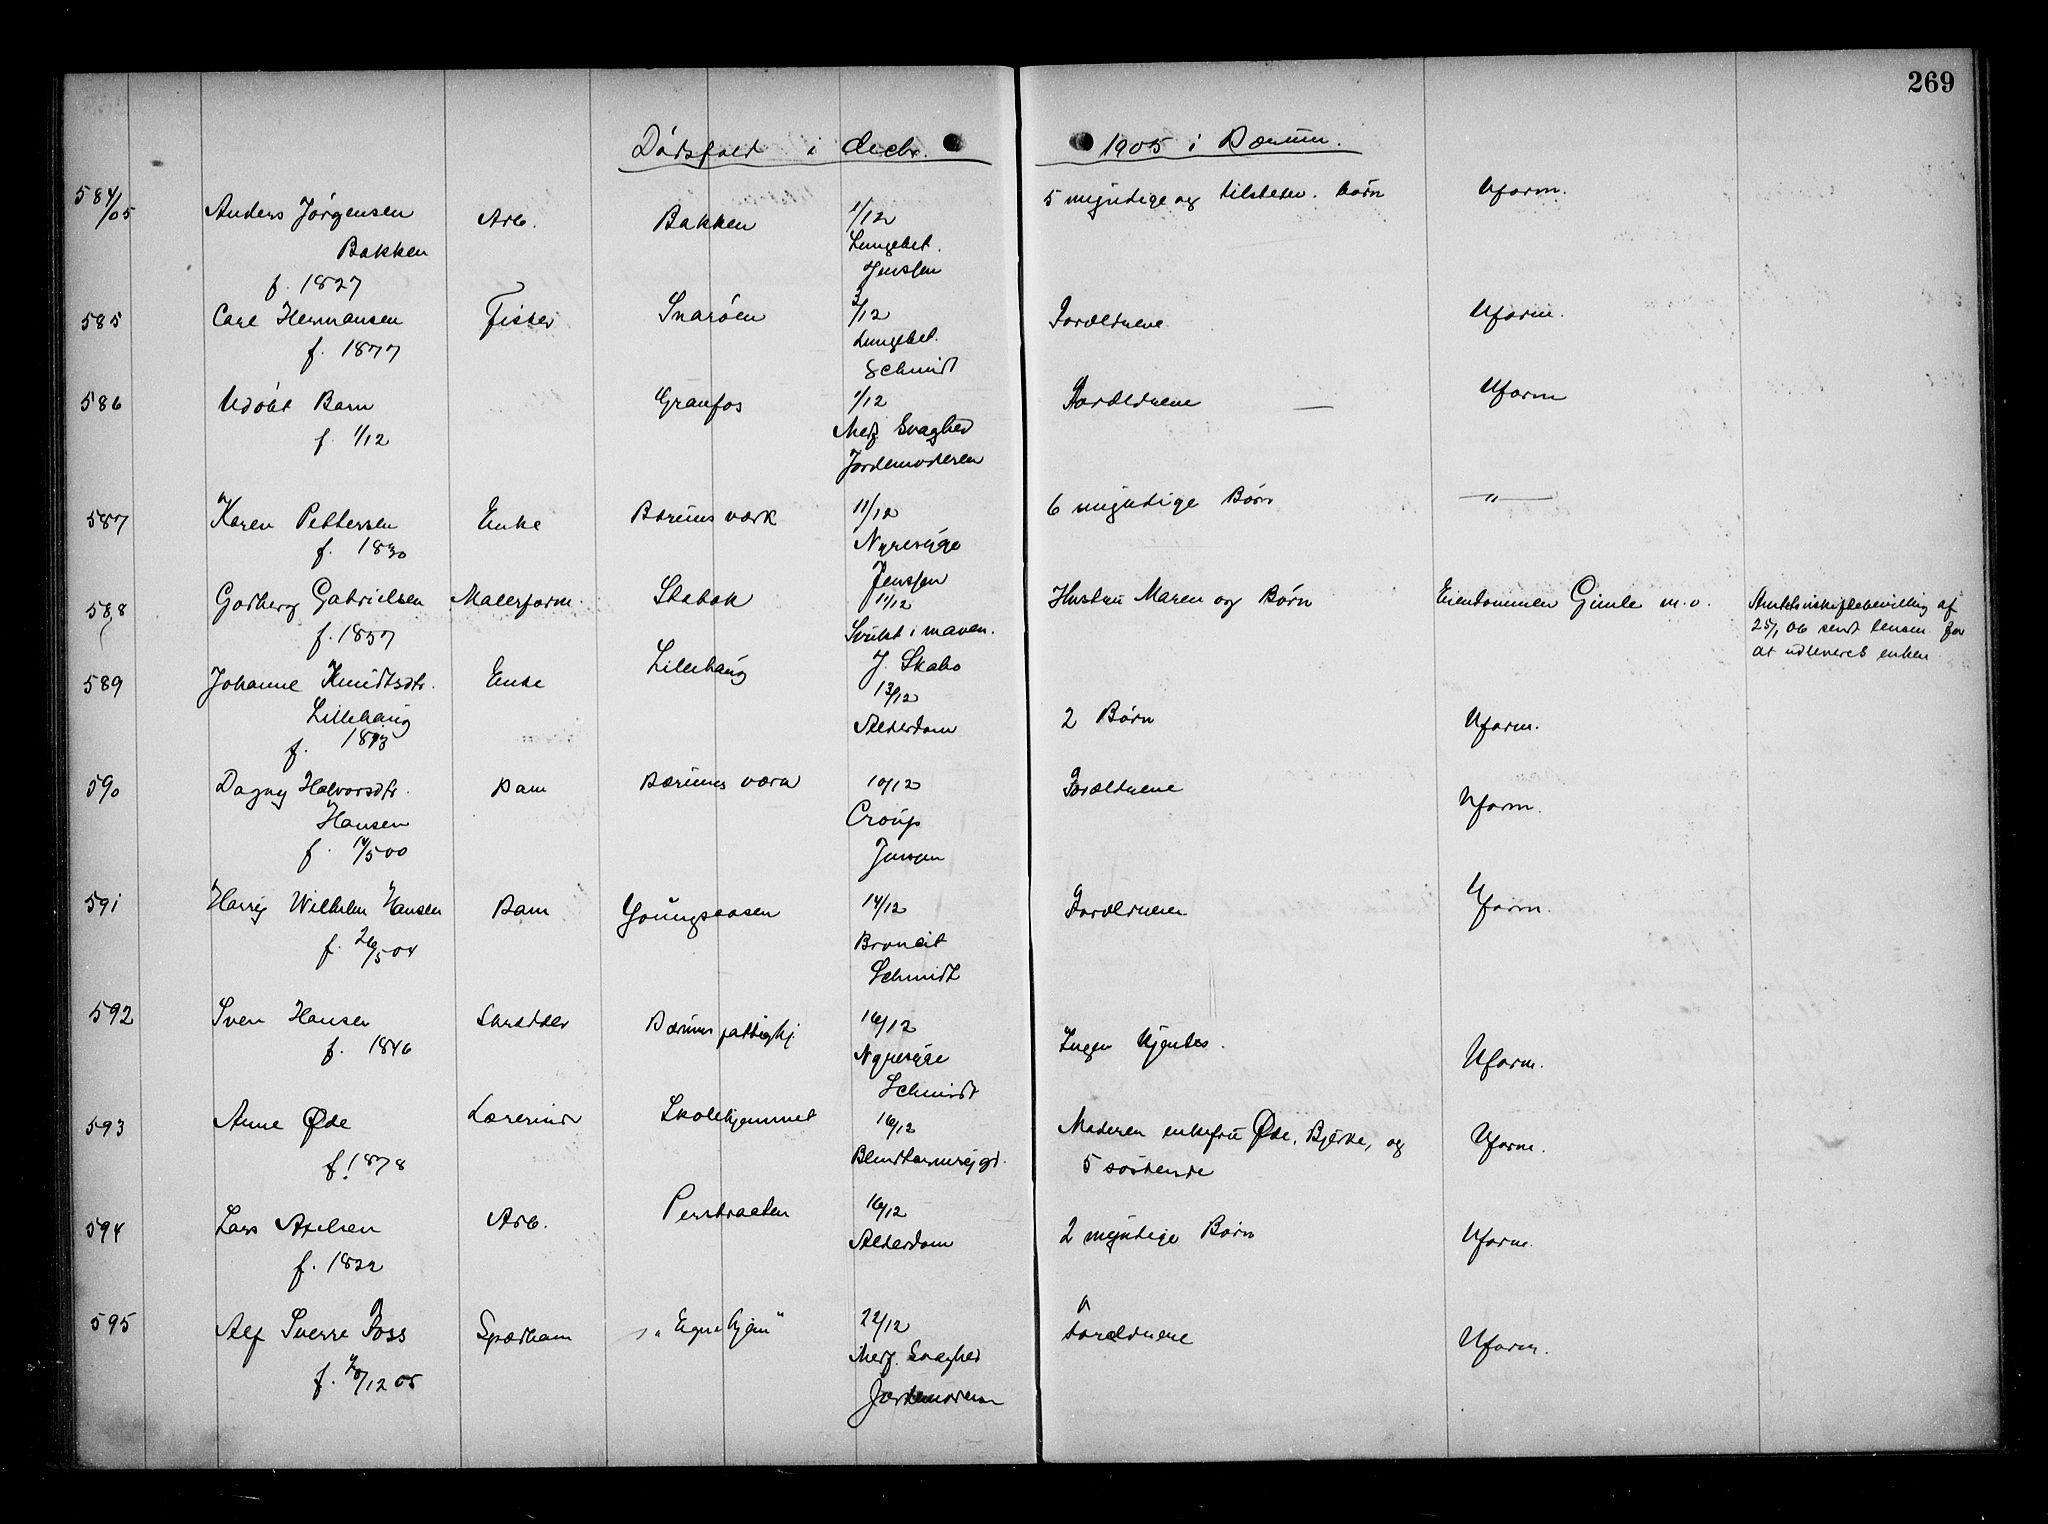 269
Dødsfald i decbr. 1905 i Bærum.
584/05 Anders Jørgensen Arb. Bakken 1/12 5 myndige og tilstede. børn Uform.
Bakken Lungebet.
f. 1827 Jenssen
585 Carl Hermansen Fisker Snarøen 3/12 Forældrene Uform.
f. 1877 Lungebet.
Schmidt
586 Udøbt Barn Granfos 1/12 Forældrene — Uform
f. 1/12 Medf. Svaghed
Jordemoderen
587 Karen Pettersen Enke Bærums værk 11/12 6 myndige Børn — " —
f. 1830 Nyresyge
Jenssen
588 Gabrielsen Malerform. Stabæk 11/12 Hustru Maren og Børn Eiendommen Gimle m.v.
f. 1857 Svulst i maven.
J. Skabo
25/1 06 sendt lensm. for
at udleveres enken
589 Johanne Knudtsdtr. Enke Lillehaug 13/12 2 Børn Uform.
Lillehaug Alderdom
f. 1813
590 Dagny Halvorsdtr. Barn Bærums værk 10/12 Forældrene Uform.
Hansen Croup
f. 14/5 00 Jenssen
591 Harry Wilhelm Hansen Barn Youngsaasen 14/12 Forældrene Uform.
f. 26/5 04 Broncit
Schmidt
592 Sven Hansen Skrædder Bærums fattighj. 16/12 Ingen kjendes. Uform.
f. 1846 Nyresyge
Schmidt
593 Anne Øde Lærerinde Skolehjemmet 16/12 Moderen enkefru Øde, Bjerke, og Uform.
f. 1878 Blindtarmsygd. 5 søskende
594 Lars Axelsen Arb. Presteraten 16/12 2 myndige Børn Uform.
f. 1822 Alderdom
595 Alf Sverre Foss Spædbarn "Egne hjem" 22/12 Forældrene Uform.
f. 20/12 05 Medf. Svaghed
Jordemoderen